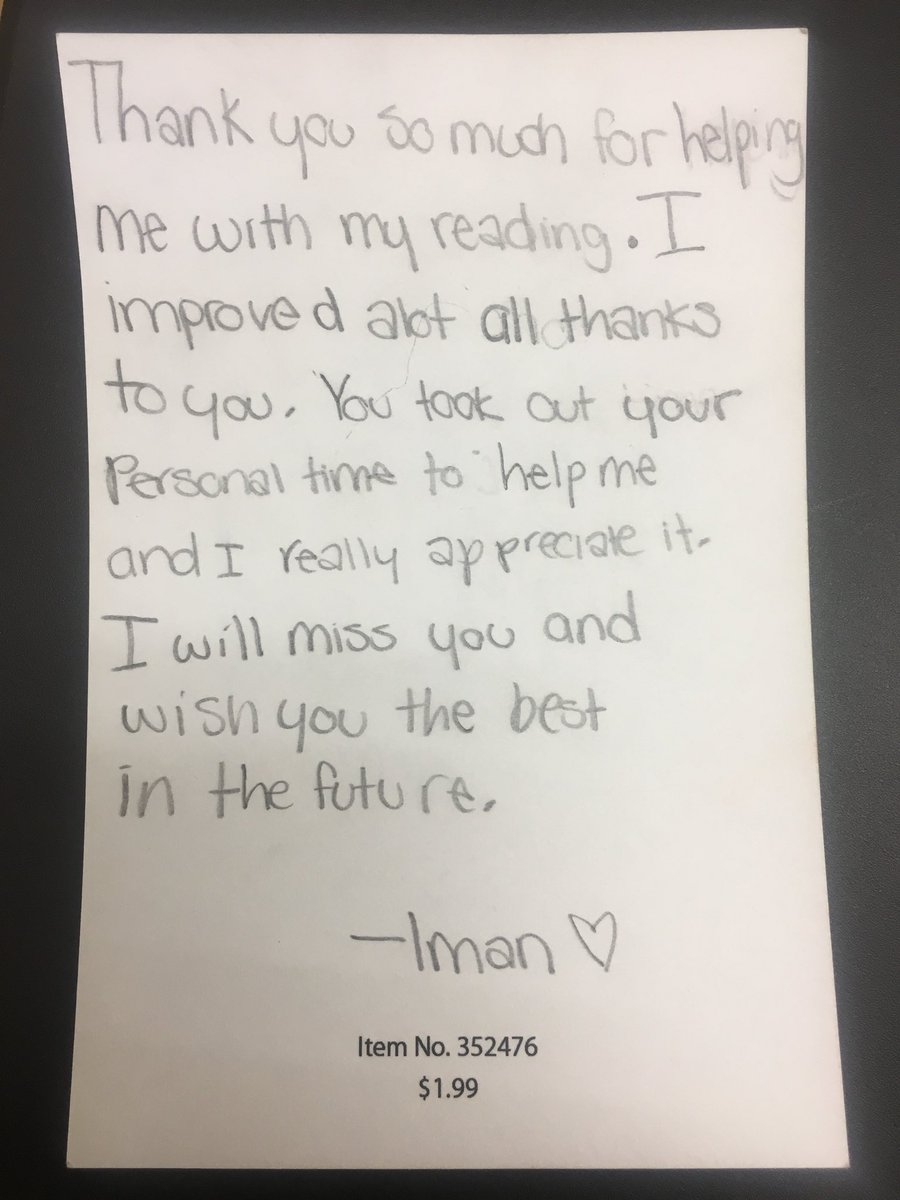 Thank you so much for helping
me with my reading. I
improved alot all thanks
to you. You took out your
Personal time to help me
and I really appreciate it.
I will miss you and
wish you the best
in the future.
—Iman ♡
Item No. 352476
$1.99